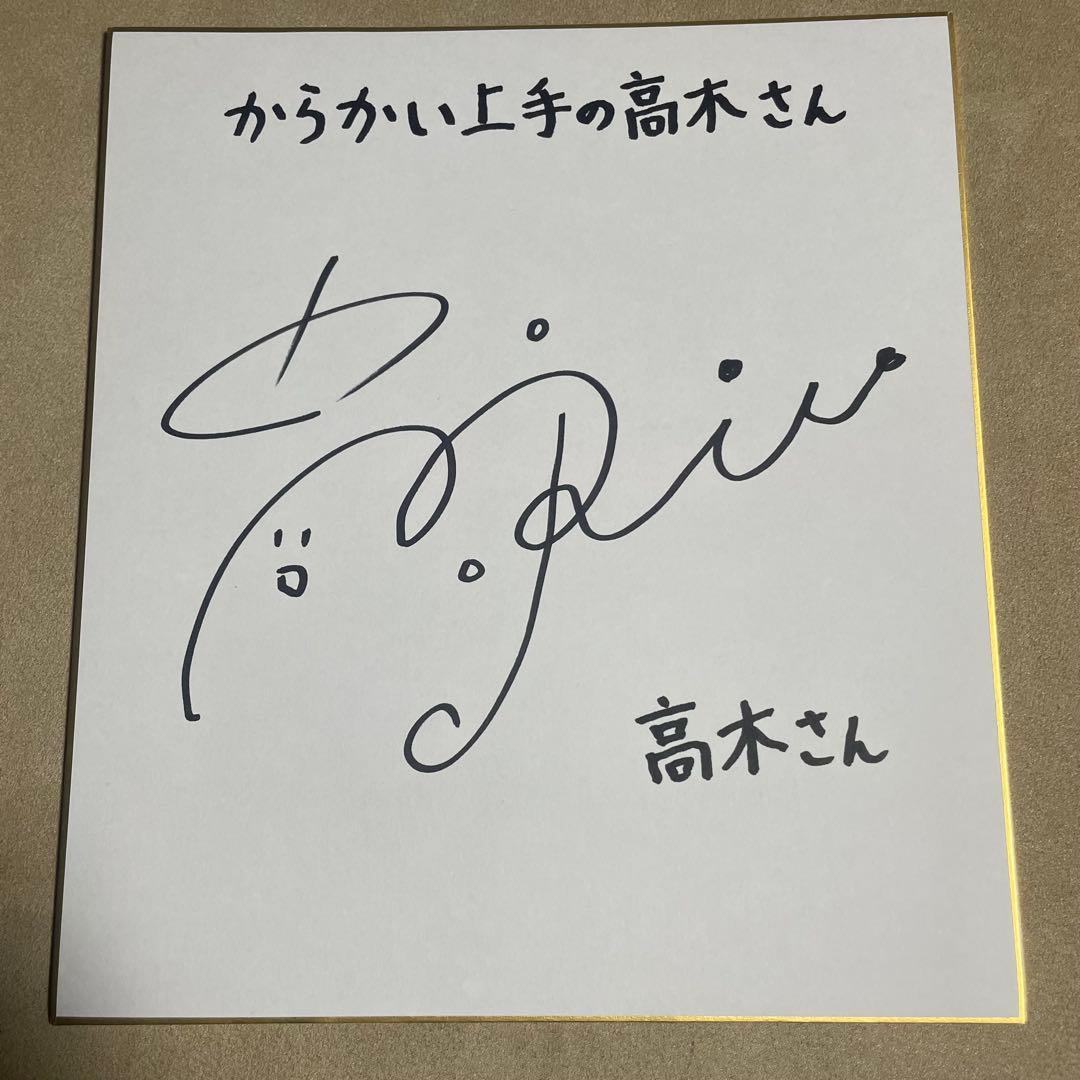 からかい上手の高木さん
高木さん